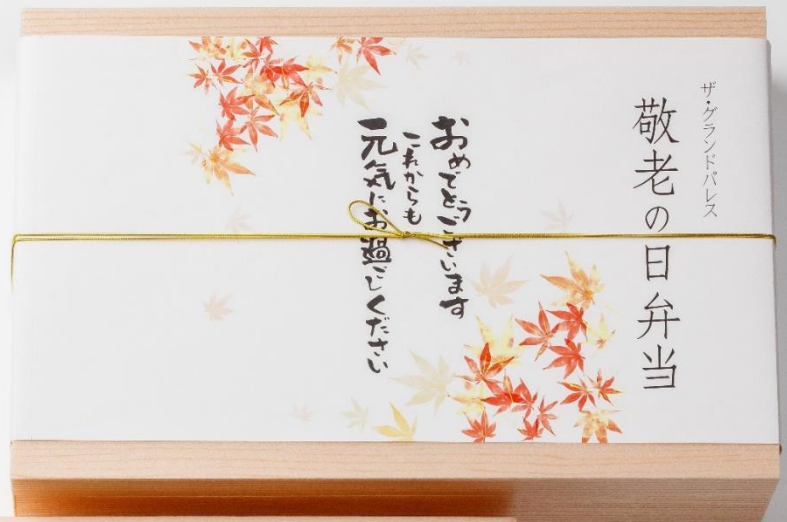 ザ・グランドパレス
敬老の日弁当
おめでとうございます
これからも
元気にお過ごしください